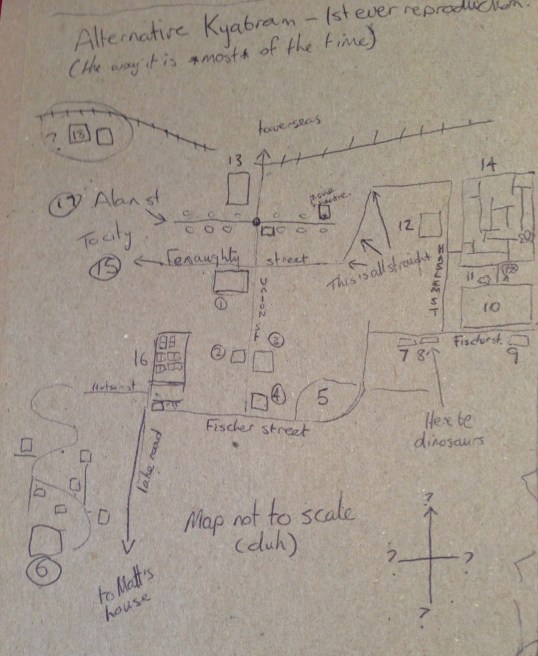 Alternative Kyabram - 1st ever reproduction.
(the way it is *most* of the time)
to overseas
? 18
13
14
17 Alan st
To city
15
Fenaughty street
12
This is all straight
HAREM ST
UNION ST
1
11
10
16
2
3
7 8
Fischer st.
9
4
5
Fischer street
Here be
dinosaurs
Lake road
6
to Matt's
house
Map not to scale
(duh)
?
? ?
?